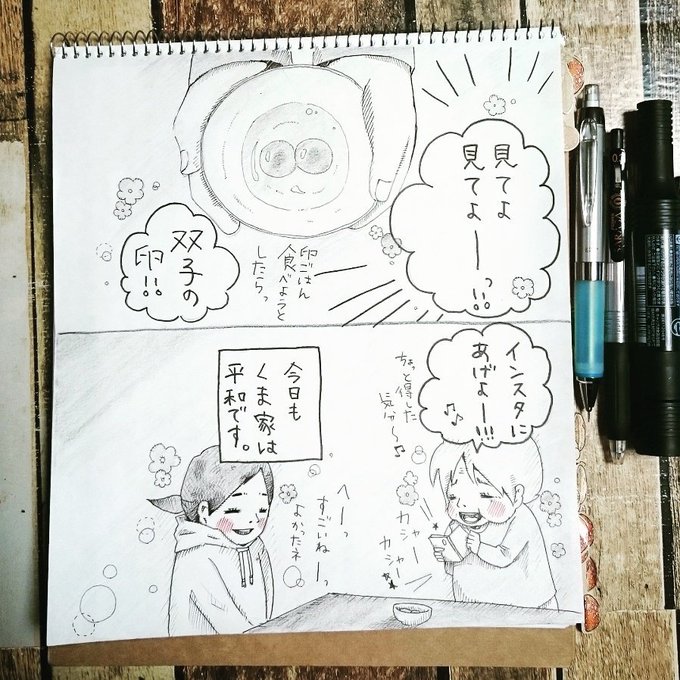 見てよ
見てよーっ!!
卵ごはん
食べようと
したらっ
双子の
卵!!
インスタに
あげよー!!!
ちょっと得した
気分〜♪
カシャー
カシャー
今日も
くま家は
平和です。
へーっ
すごいねーっ
よかったネ